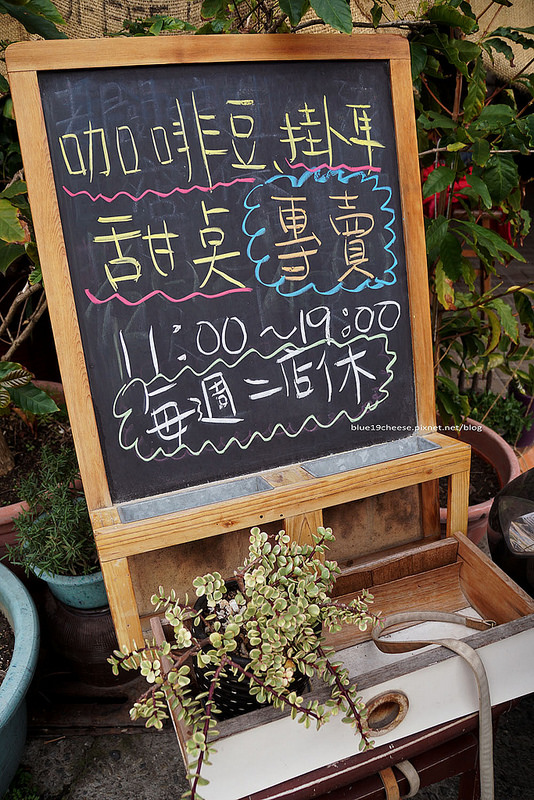 咖啡豆、掛耳
甜點 專賣
11:00~19:00
每週二店休
blue19cheese.pixnet.net/blog